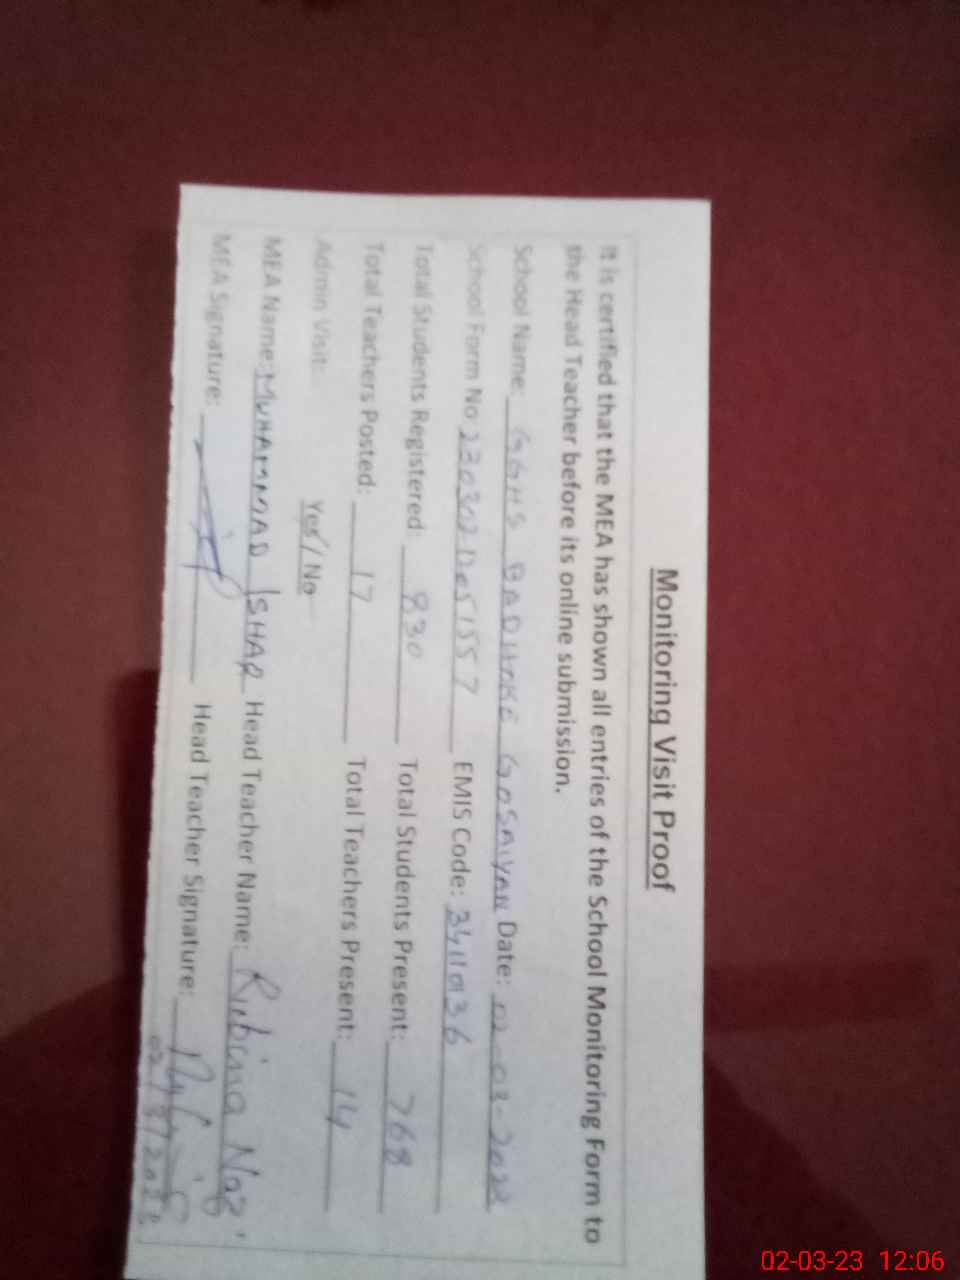 Monitoring Visit Proof
It is certified that the MEA has shown all entries of the School Monitoring Form to
the Head Teacher before its online submission.
School Name: GGHS BADHOKE GOSAIYAN Date: 02-03-2023
School Form No: EMIS Code: 34110136
Total Students Registered: 830 Total Students Present: 768
Total Teachers Posted: 17 Total Teachers Present: 14
Admin Visit: Yes/No
MEA Name: MUHAMMAD ISHAQ Head Teacher Name: Rubina Naz
MEA Signature: Head Teacher Signature:
02-03-23 12:06